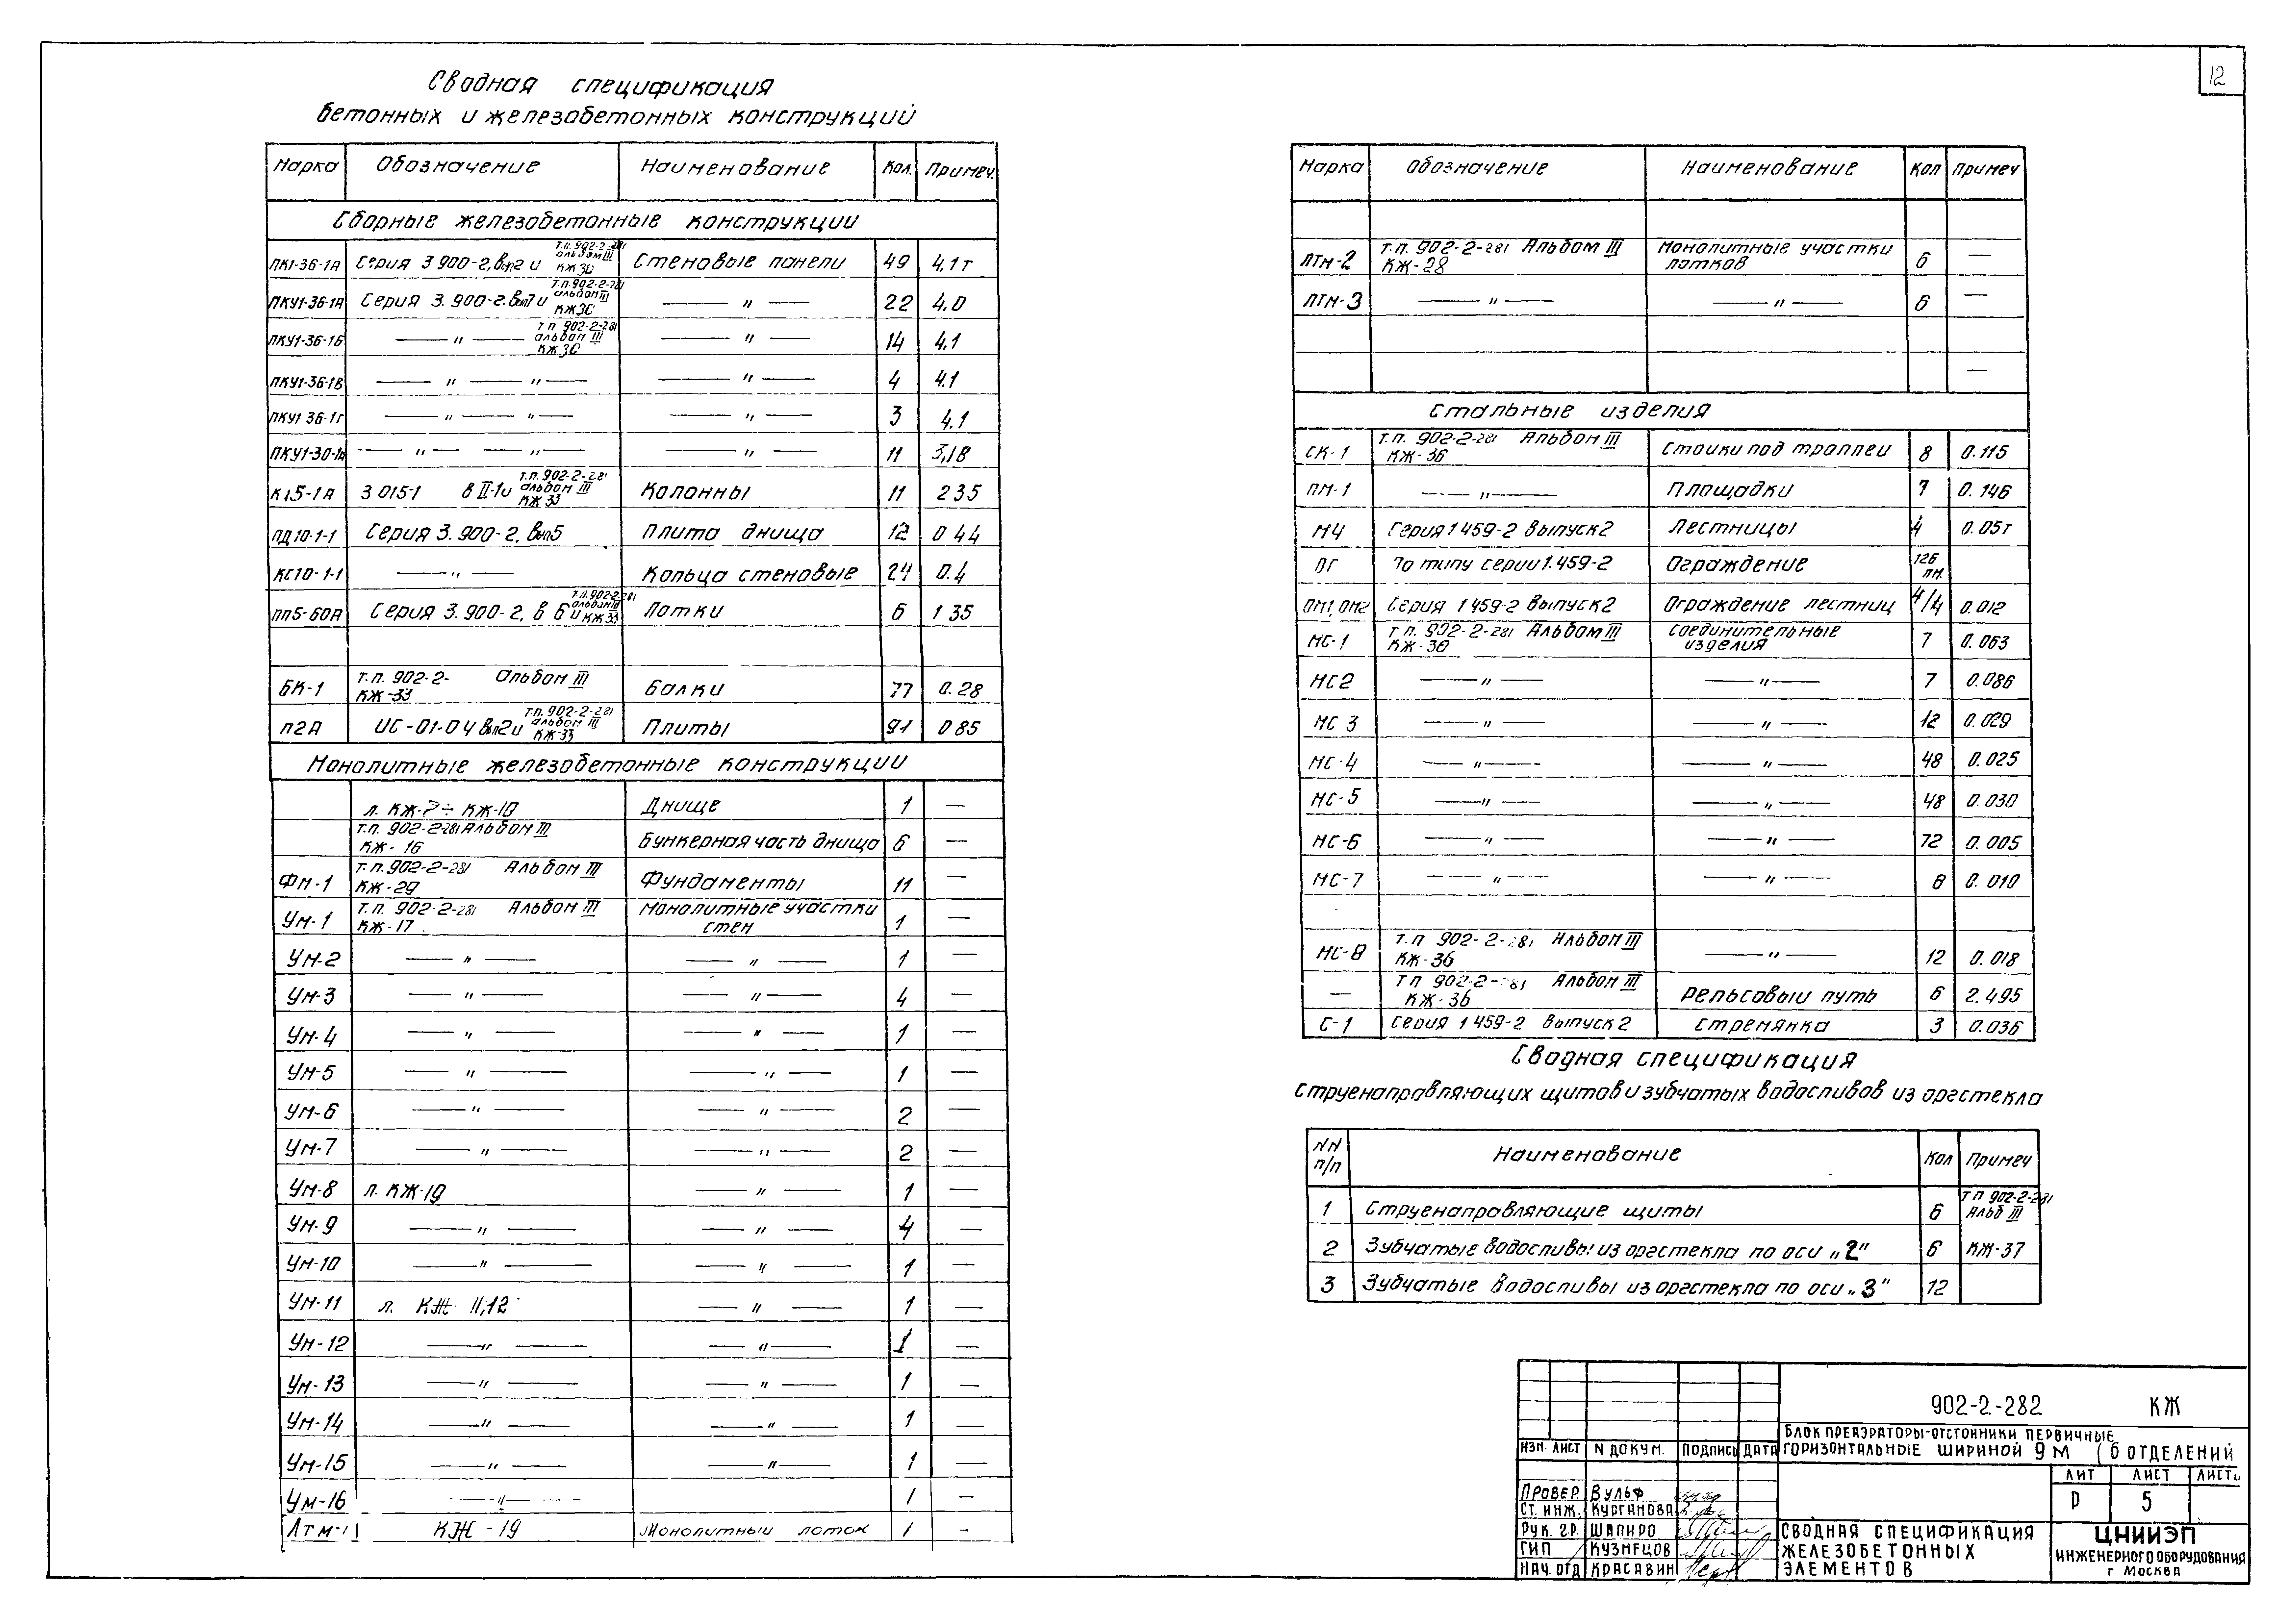 12
Сводная спецификация
бетонных и железобетонных конструкций
Марка Обозначение Наименование Кол. Примеч.
Сборные железобетонные конструкции
ПК1-36-1А Серия 3 900-2, вып2 и т.п. 902-2-281 альбом III КЖ30 Стеновые панели 49 4,1т
ПКУ1-36-1А Серия 3.900-2. вып7 и т.п. 902-2-281 альбом III КЖ30 — " — 22 4.0
ПКУ1-36-1Б — " — т п 902-2-281 альбом III КЖ30 — " — 14 4.1
ПКУ1-36-1В — " — " — — " — 4 4.1
ПКУ1 36-1г — " — " — — " — 3 4.1
ПКУ1-30-1А — " — — " — — " — 11 3,18
К1.5-1А 3 015-1 в II-1и т.п. 902-2-281 альбом III КЖ 33 Колонны 11 2 35
ПД10-1-1 Серия 3.900-2, вып5 Плита днища 12 0 44
КС10-1-1 — " — Кольца стеновые 24 0.4
ПП5-60А Серия 3.900-2, в 6 и т.п.902-2-281 альбом III КЖ 33 Лотки 6 1 35
БК-1 т.п. 902-2- Альбом III КЖ-33 Балки 77 0.28
П2А ИС-01-04 вып2 и т.п. 902-2-281 альбом III КЖ-33 Плиты 91 0 85
Монолитные железобетонные конструкции
л. КЖ-7 ÷ КЖ-10 Днище 1 —
т.п. 902-2-281 Альбом III КЖ-16 Бункерная часть днища 6 —
ФМ-1 т.п. 902-2-281 Альбом III КЖ-29 Фундаменты 11 —
УМ-1 т.п. 902-2-281 Альбом III КЖ-17 Монолитные участки стен 1 —
УМ-2 — " — — " — 1 —
УМ-3 — " — — " — 4 —
УМ-4 — " — — " — 1 —
УМ-5 — " — — " — 1 —
УМ-6 — " — — " — 2 —
УМ-7 — " — — " — 2 —
УМ-8 л. КЖ-19 — " — 1 —
УМ-9 — " — — " — 4 —
УМ-10 — " — — " — 1 —
УМ-11 л. КЖ 11,12 — " — 1 —
УМ-12 — " — — " — 1 —
УМ-13 — " — — " — 1 —
УМ-14 — " — — " — 1 —
УМ-15 — " — — " — 1 —
УМ-16 — " — 1 —
Лтм-1 КЖ-19 Монолитный лоток 1 —
Марка Обозначение Наименование Кол Примеч
ЛТМ-2 т.п. 902-2-281 Альбом III КЖ-28 Монолитные участки лотков 6 —
ЛТМ-3 — " — — " — 6 —
—
Стальные изделия
СК-1 т.п. 902-2-281 Альбом III КЖ-36 Стойки под троллеи 8 0.115
ПМ-1 — " — Площадки 7 0.146
М4 Серия 1 459-2 выпуск 2 Лестницы 4 0.05т
ОГ По типу серии 1.459-2 Ограждение 126 пм.
ОМ1, ОМ2 Серия 1 459-2 выпуск 2 Ограждение лестниц 4/4 0.012
МС-1 т п. 902-2-281 Альбом III КЖ-30 Соединительные изделия 7 0.063
МС2 — " — — " — 7 0.086
МС 3 — " — — " — 12 0.029
МС-4 — " — — " — 48 0.025
МС-5 — " — — " — 48 0.030
МС-6 — " — — " — 72 0.005
МС-7 — " — — " — 8 0.010
МС-8 т.п 902-2-281 Альбом III КЖ-36 — " — 12 0.018
— т п 902-2-281 Альбом III КЖ-36 Рельсовый путь 6 2.495
С-1 Серия 1 459-2 Выпуск 2 Стремянка 3 0.036
Сводная спецификация
струенаправляющих щитов и зубчатых водосливов из оргстекла
NN п/п Наименование Кол Примеч
1 Струенаправляющие щиты 6 т п 902-2-281 Альб III
2 Зубчатые водосливы из оргстекла по оси „2" 6 КЖ-37
3 Зубчатые водосливы из оргстекла по оси „3" 12
902-2-282 КЖ
БЛОК ПРЕАЭРАТОРЫ-ОТСТОЙНИКИ ПЕРВИЧНЫЕ
ГОРИЗОНТАЛЬНЫЕ ШИРИНОЙ 9 М (6 ОТДЕЛЕНИЙ
ИЗМ. ЛИСТ N ДОКУМ. ПОДПИСЬ ДАТА
ЛИТ ЛИСТ ЛИСТЬ
Р 5
ПРОВЕР. ВУЛЬФ
СТ. ИНЖ. КУРГАНОВА
РУК. ГР. ШАПИРО
ГИП КУЗНЕЦОВ
НАЧ. ОТД КРАСАВИН
СВОДНАЯ СПЕЦИФИКАЦИЯ
ЖЕЛЕЗОБЕТОННЫХ
ЭЛЕМЕНТОВ
ЦНИИЭП
ИНЖЕНЕРНОГО ОБОРУДОВАНИЯ
г МОСКВА